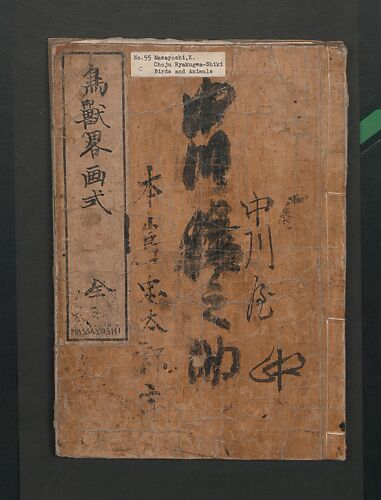 No.55 Masayoshi,K.
C Choju Ryakugwa-Shiki
Birds and Animals
鳥獣畧画式
全
MASSAYOSHI
中川
之助
中川屋
本
太